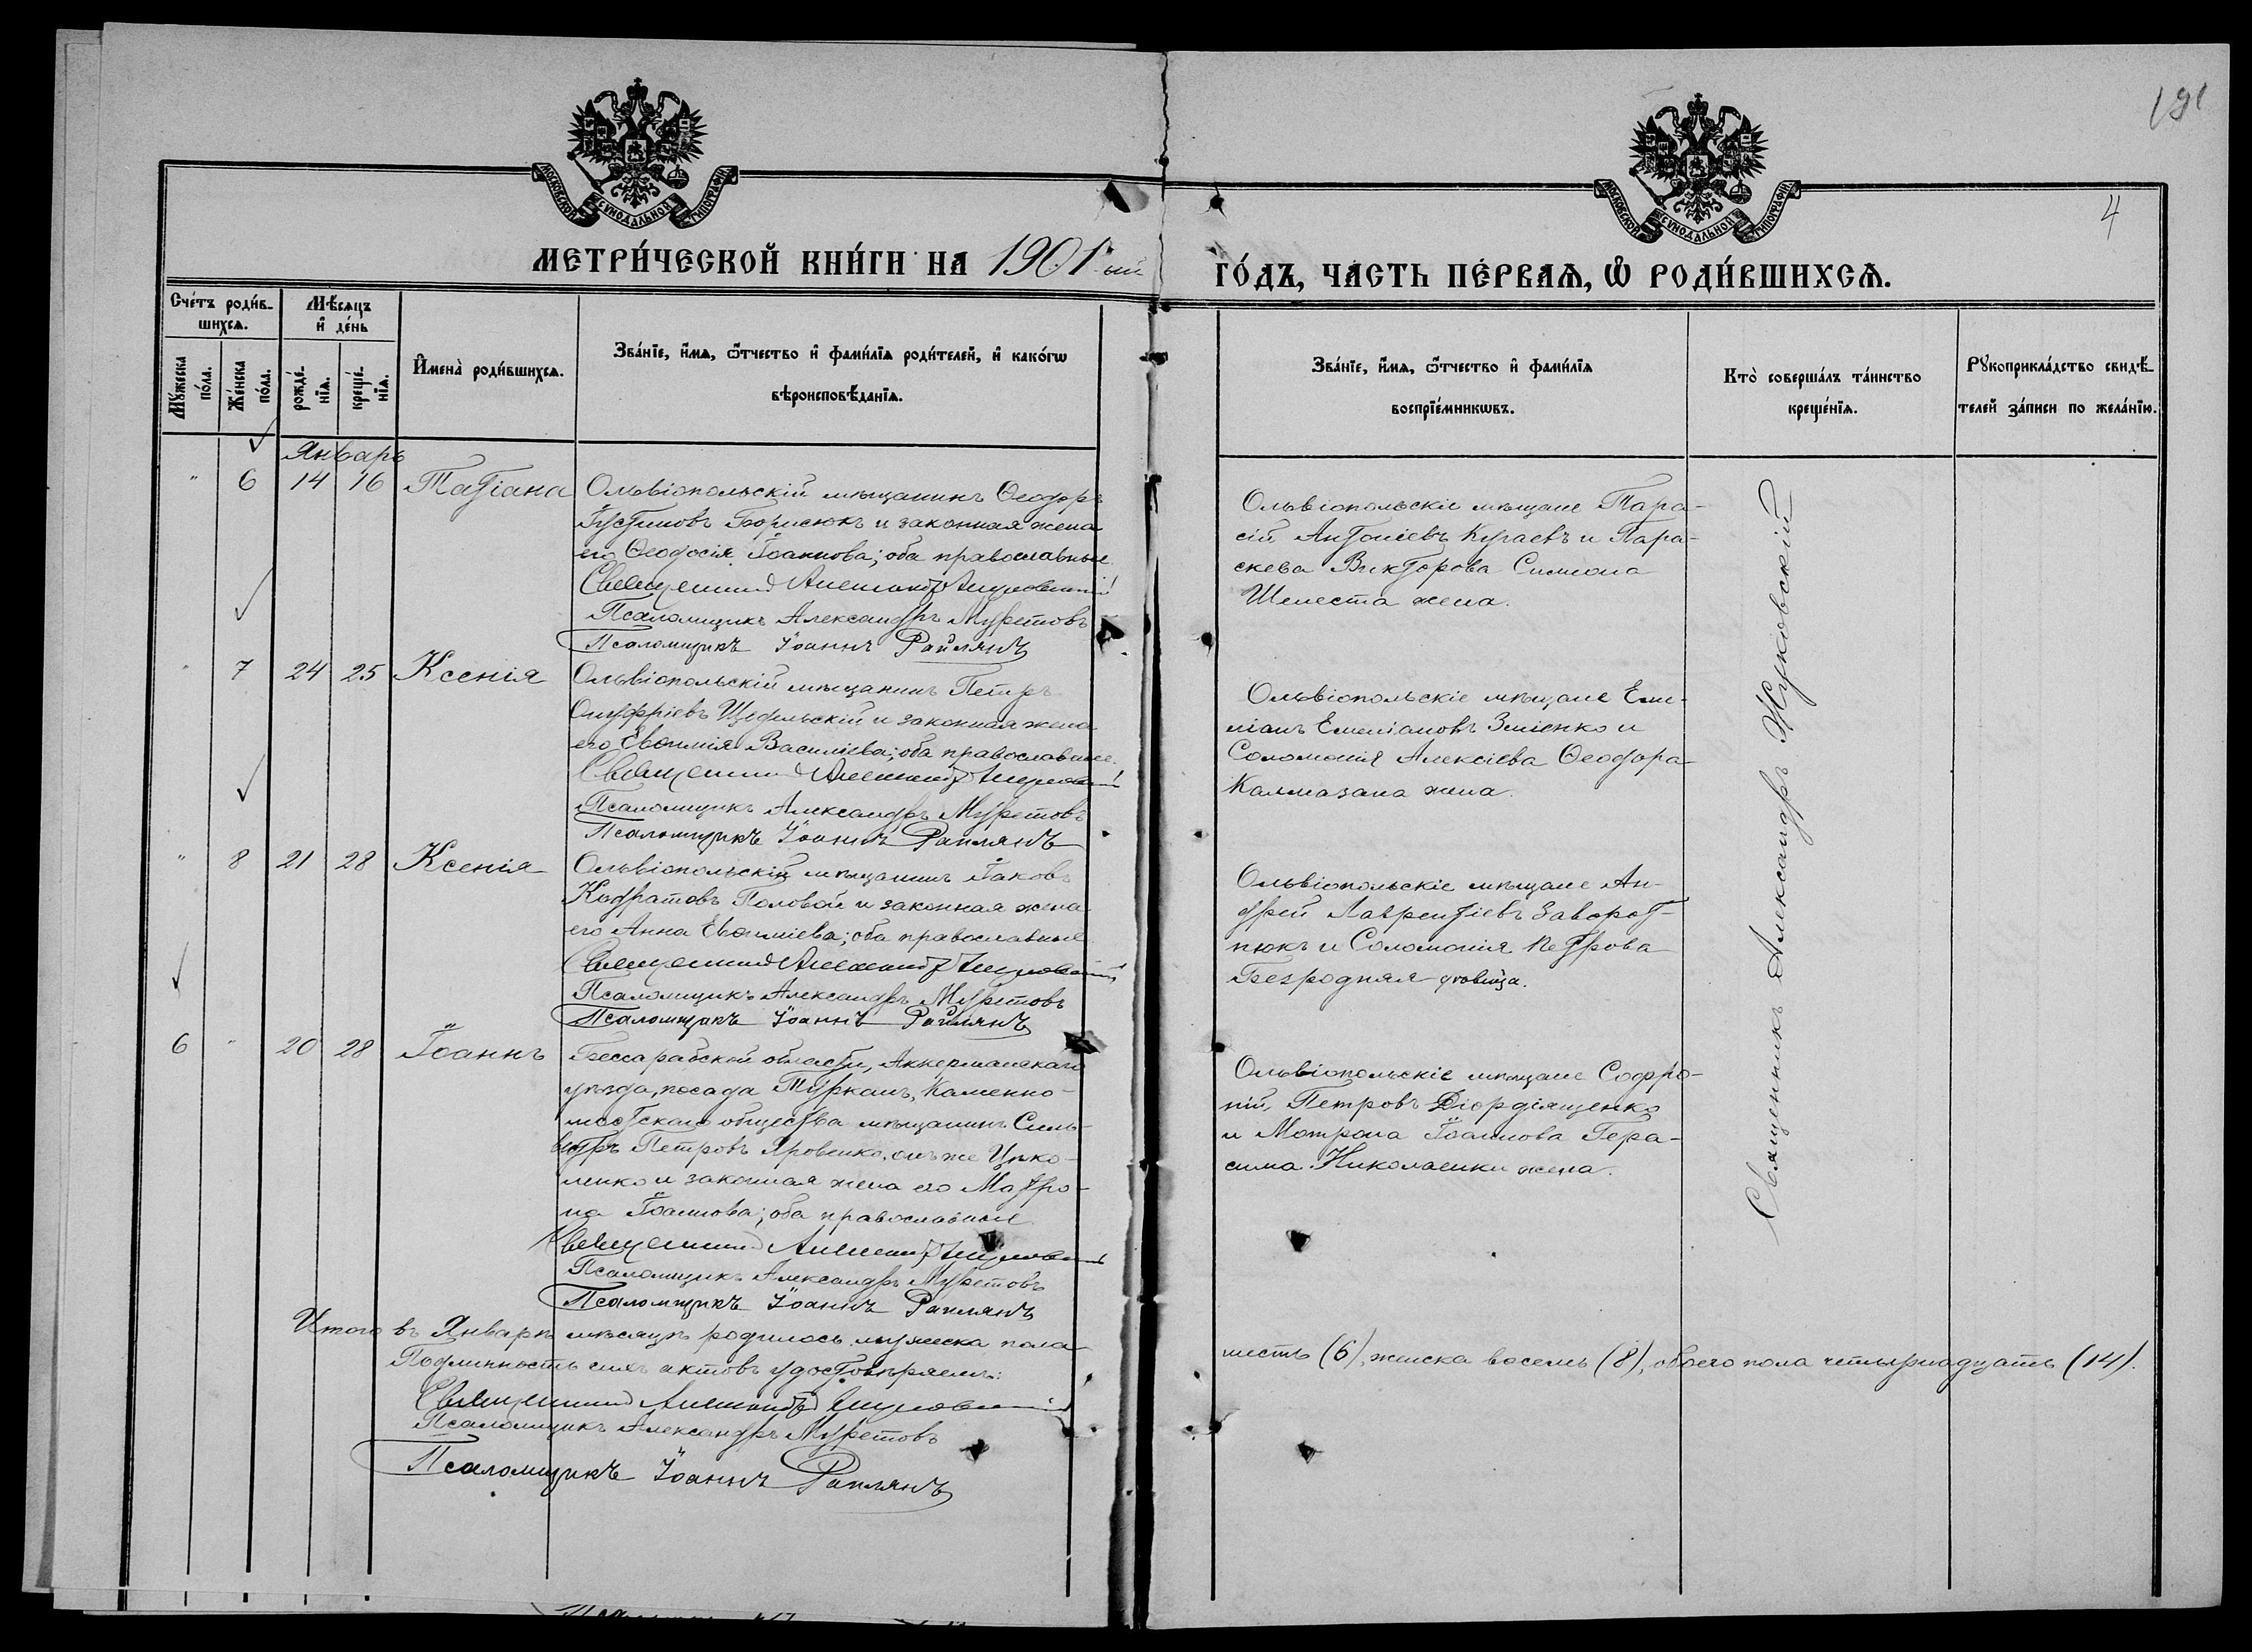 191
4
МОСКОВСКОЙ СѴНОДАЛЬНОЙ ТИПОГРАФІИ
МОСКОВСКОЙ СѴНОДАЛЬНОЙ ТИПОГРАФІИ
МЕТРИ́ЧЕСКОЙ КНИ́ГИ НА 1901ый
ГО́ДЪ, ЧА́СТЬ ПЕ́РВАѦ, Ѽ РОДИ́ВШИХСѦ.
Сче́тъ роди́в-
шихсѧ.
Мꙋ́жеска по́ла.
Же́нска по́ла.
Мѣ́сѧцъ
и҆ де́нь
рожде́-
нїѧ.
креще́-
нїѧ.
И҆мена̀ роди́вшихсѧ.
Зва́нїе, и҆́мѧ, ѻ҆́тчество и҆ фами́лїѧ роди́телей, и҆ како́гѡ
вѣроисповѣ́данїѧ.
Зва́нїе, и҆́мѧ, ѻ҆́тчество и҆ фами́лїѧ
воспрїе́мникѡвъ.
Кто̀ соверша́лъ та́инство
креще́нїѧ.
Рꙋкоприкла́дство свидѣ́-
телей за́писи по жела́нїю.
Январь
" 6 14 16 Татіана
Ольвіопольскій мѣщанинъ Ѳеодоръ
Іустиновъ Борисюкъ и законная жена
его Ѳеодосія Іоаннова; оба православные
Священникъ Александръ Жуковскій
Псаломщикъ Александръ Муретовъ
Псаломщикъ Іоаннъ Раилянъ
Ольвіопольскіе мѣщане Тара-
сій Антоніевъ Кугаевъ и Пара-
скева Викторова Симеона
Шелеста жена.
" 7 24 25 Ксенія
Ольвіопольскій мѣщанинъ Петръ
Онуфріевъ Щедельскій и законная жена
его Евѳимія Василіева; оба православные.
Священникъ Александръ Жуковскій
Псаломщикъ Александръ Муретовъ
Псаломщикъ Іоаннъ Раилянъ
Ольвіопольскіе мѣщане Еми-
ліанъ Емиліановъ Зміенко и
Соломонія Алексіева Ѳеодора
Калмазана жена.
" 8 21 28 Ксенія
Ольвіопольскій мѣщанинъ Іаковъ
Кодратовъ Половой и законная жена
его Анна Евѳиміева; оба православные
Священникъ Александръ Жуковскій
Псаломщикъ Александръ Муретовъ
Псаломщикъ Іоаннъ Раилянъ
Ольвіопольскіе мѣщане Ан-
дрей Лаврентіевъ Заворот-
нюкъ и Соломонія Петрова
Безродняя дѣвица.
6 " 20 28 Іоаннъ
Бессарабской области, Аккерманскаго
уѣзда, посада Турканъ, Каменно-
мостскаго общества мѣщанинъ Силь-
вестръ Петровъ Яровенко, онъ же Цуко-
ленко и законная жена его Матро-
на Іоаннова; оба православные
Священникъ Александръ Жуковскій
Псаломщикъ Александръ Муретовъ
Псаломщикъ Іоаннъ Раилянъ
Ольвіопольскіе мѣщане Софро-
ній Петровъ Діордіященко
и Мотрона Іоаннова Гера-
сима Николаенки жена.
Священникъ Александръ Жуковскій
Итого въ Январѣ мѣсяцѣ родилось мужеска пола
шесть (6), женска восемь (8), обоего пола четырнадцать (14).
Подлинность сихъ актовъ удостовѣряемъ:
Священникъ Александръ Жуковскій
Псаломщикъ Александръ Муретовъ
Псаломщикъ Іоаннъ Раилянъ